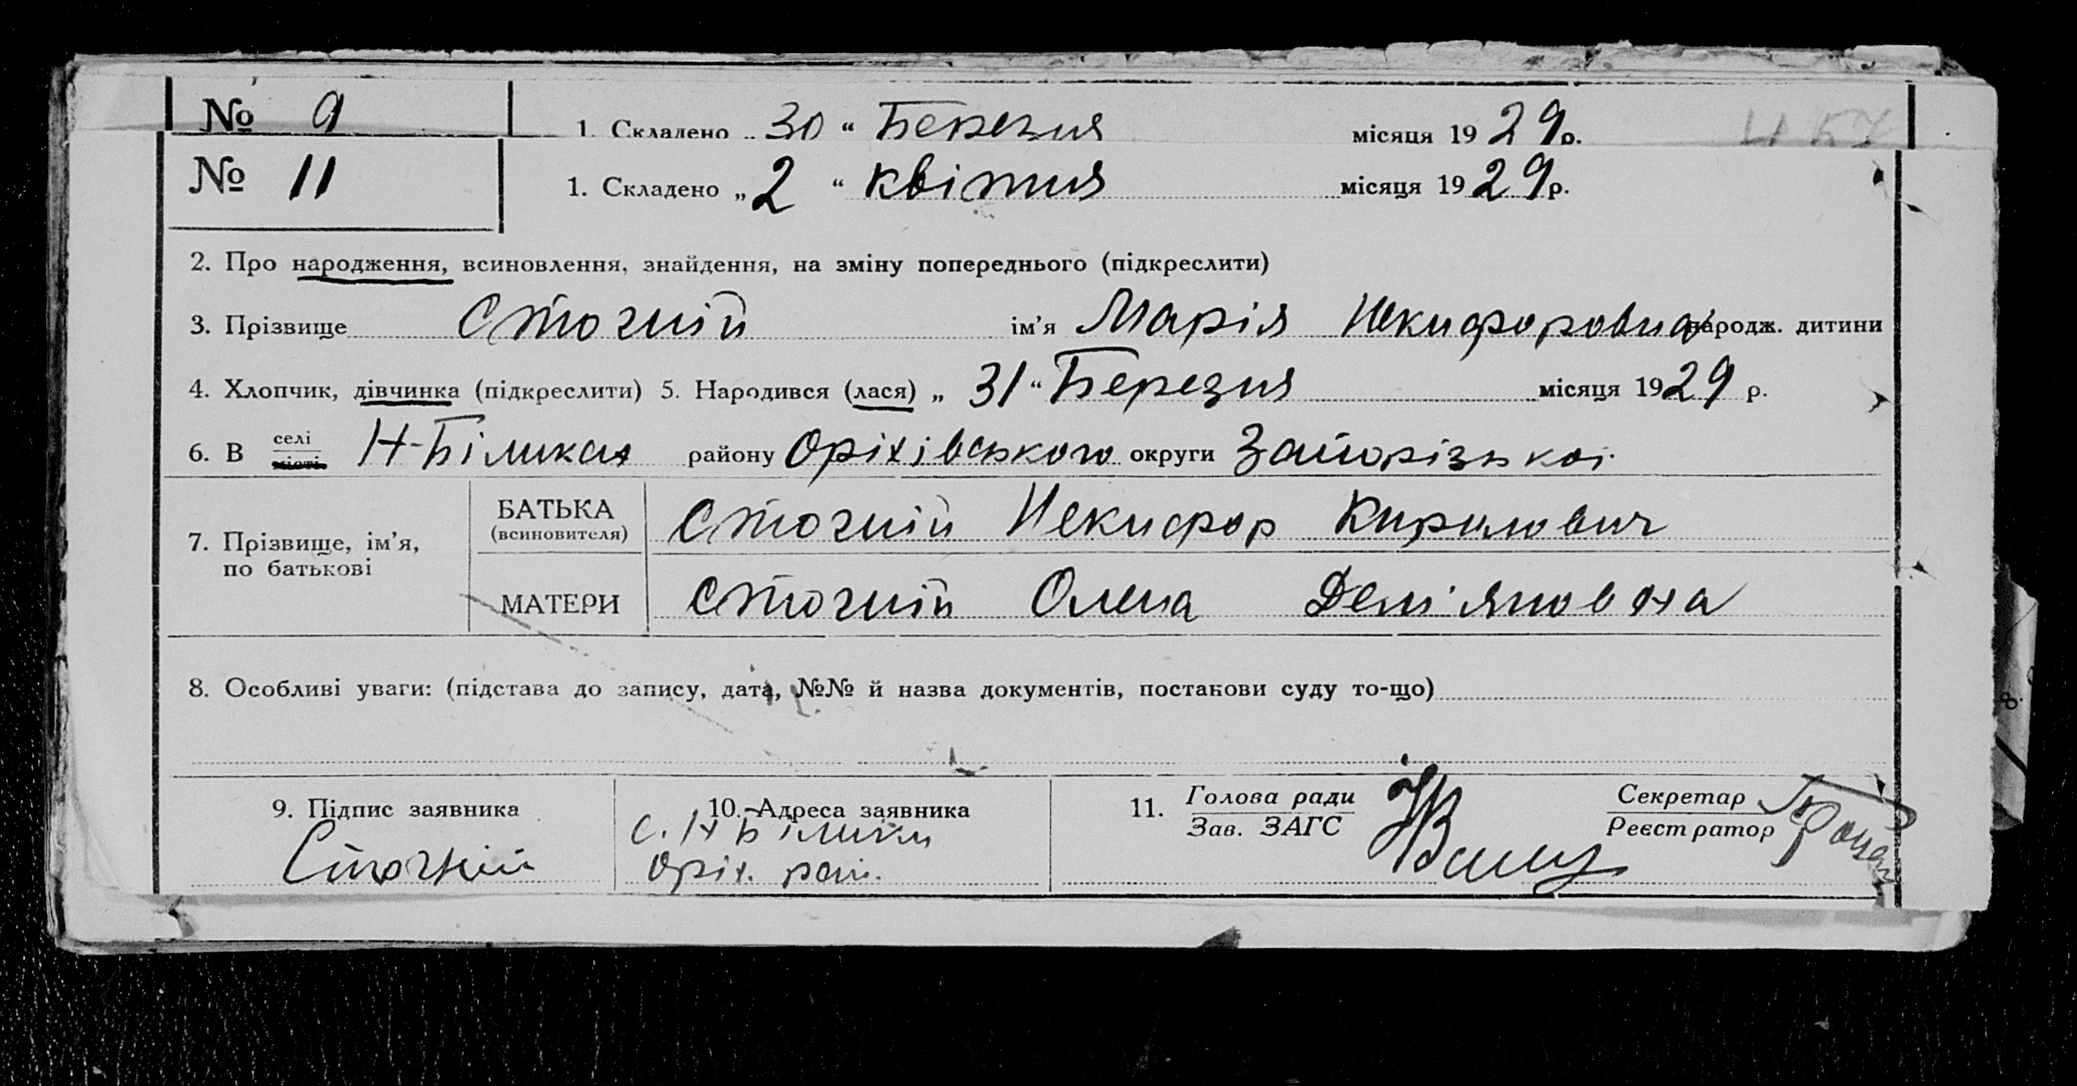 № 9 1. Складено „ 30 “ Березня місяця 19 29 р.
№ 11 1. Складено „ 2 “ квітня місяця 19 29 р.
2. Про народження, всиновлення, знайдення, на зміну попереднього (підкреслити)
3. Прізвище Сточній ім’я Марія Некифоровна народж. дитини
4. Хлопчик, дівчинка (підкреслити) 5. Народився (лася) „ 31 “ Березня місяця 19 29 р.
6. В селі місті Н-Біликах району Оріхівського округи Запорізької
7. Прізвище, ім’я, по батькові
БАТЬКА (всиновителя) Сточній Некифор Кирилович
МАТЕРИ Сточній Олена Дем'яновна
8. Особливі уваги: (підстава до запису, дата, №№ й назва документів, постанови суду то-що)
9. Підпис заявника 10. Адреса заявника 11. Голова ради Секретар
Зав. ЗАГС Реєстратор
Сточній с. Н Білики
Оріх. рай.